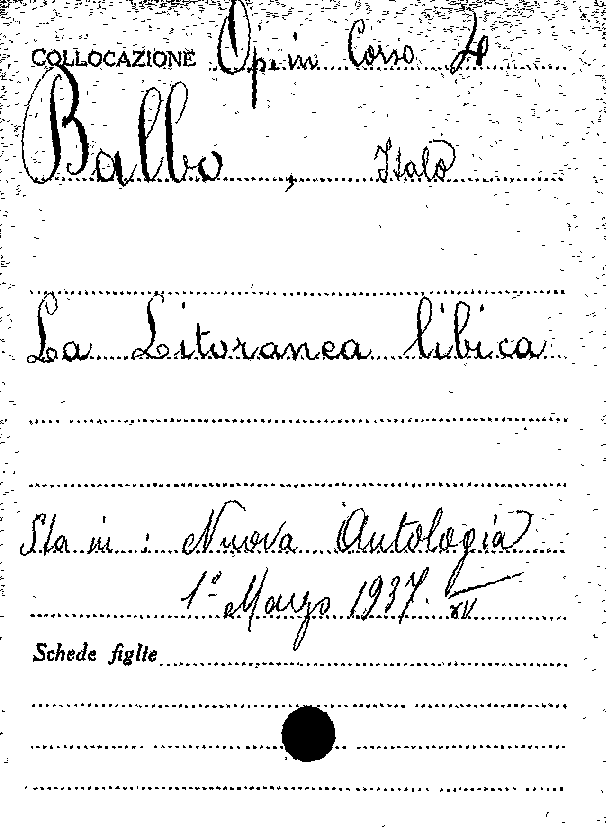 COLLOCAZIONE Op. in Corso 20
Balbo, Italo
La Litoranea libica
Sta in : Nuova Antologia
1º Marzo 1937. XV
Schede figlie